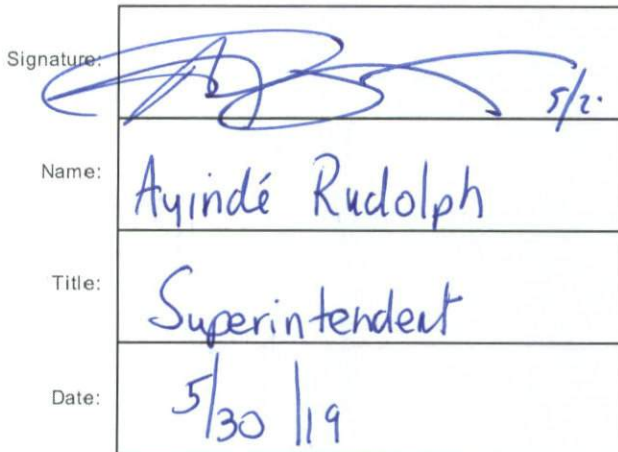 Signature: 5/2.
Name: Ayindé Rudolph
Title: Superintendent
Date: 5/30/19